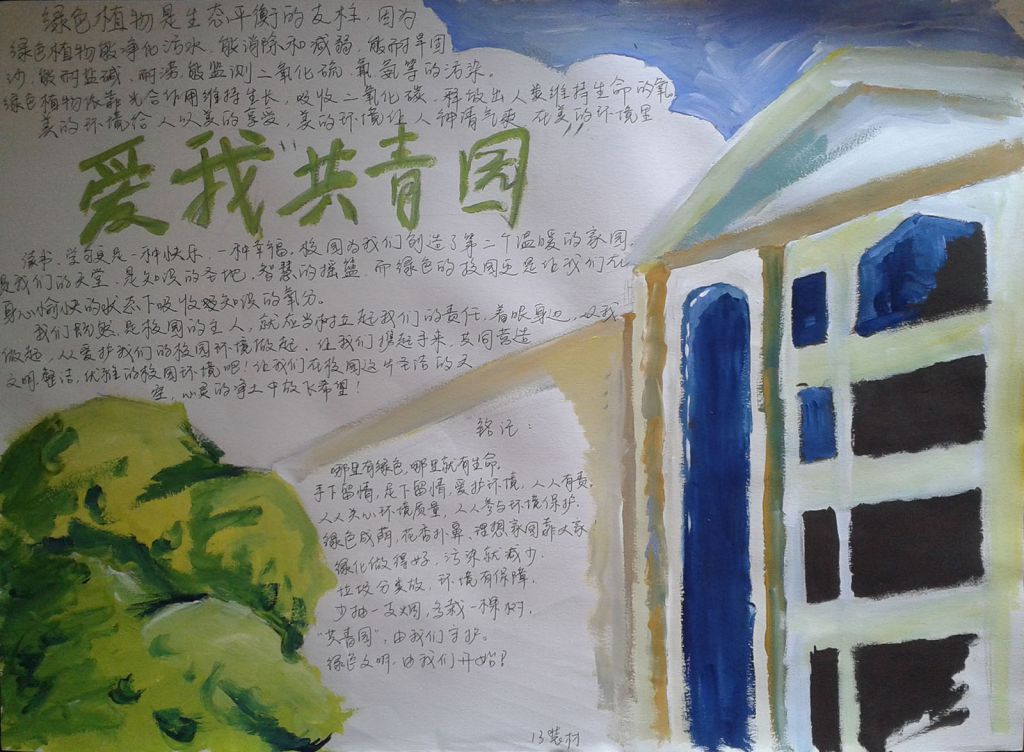 绿色植物是生态平衡的支柱，因为
绿色植物能净化污水，能消除和减弱，能耐旱固
沙，能耐盐碱，耐涝，能监测二氧化硫、氟、氨等的污染。
绿色植物依靠光合作用维持生长，吸收二氧化碳，释放出人类维持生命的氧。
美的环境给人以美的享受，美的环境让人神清气爽，在美的环境里
爱我“共青园”
读书、学习更是一种快乐，一种幸福。校园为我们创造了第二个温暖的家园。
是我们的天堂，是知识的圣地，智慧的摇篮，而绿色的校园更是让我们在
身心愉快的状态下吸收知识的氧分。
我们既然是校园的主人，就应当树立起我们的责任，着眼身边，从我
做起，从爱护我们的校园环境做起，让我们携起手来，共同营造
文明、整洁、优雅的校园环境吧！让我们在校园这片圣洁的天
空，心灵的净土中放飞希望！
铭记：
哪里有绿色，哪里就有生命。
手下留情，足下留情，爱护环境，人人有责。
人人关心环境质量，人人参与环境保护.
绿色成荫，花香扑鼻、理想家园靠大家
绿化做得好，污染就减少.
垃圾分类放，环境有保障，
少抽一支烟，多栽一棵树，
“共青园”，由我们守护。
绿色文明，由我们开始！
13装材